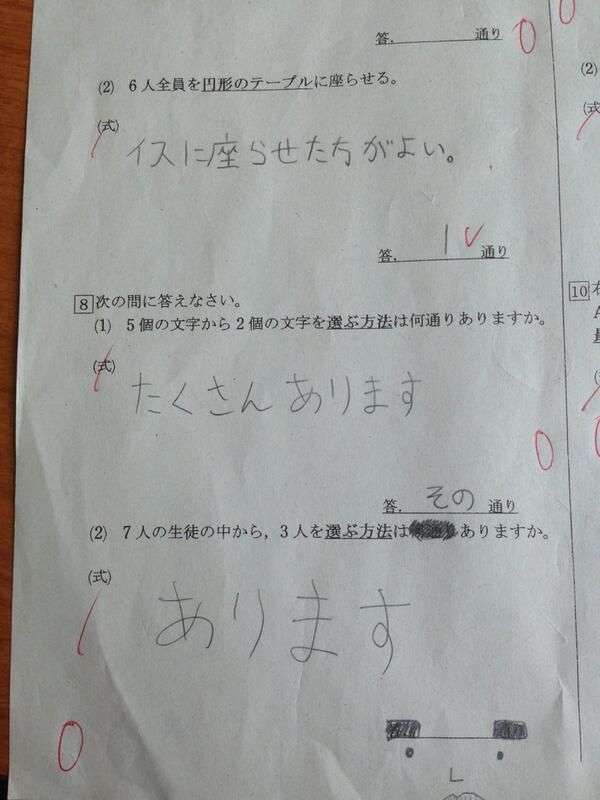 答. 通り 0
(2) 6人全員を円形のテーブルに座らせる。
(式)
イスに座らせた方がよい。
答. 1 通り
8 次の問に答えなさい。
(1) 5個の文字から2個の文字を選ぶ方法は何通りありますか。
(式)
たくさんあります
0
答. その 通り
(2) 7人の生徒の中から，3人を選ぶ方法は ありますか。
(式)
あります
0
L
0
(2)
10 右
A